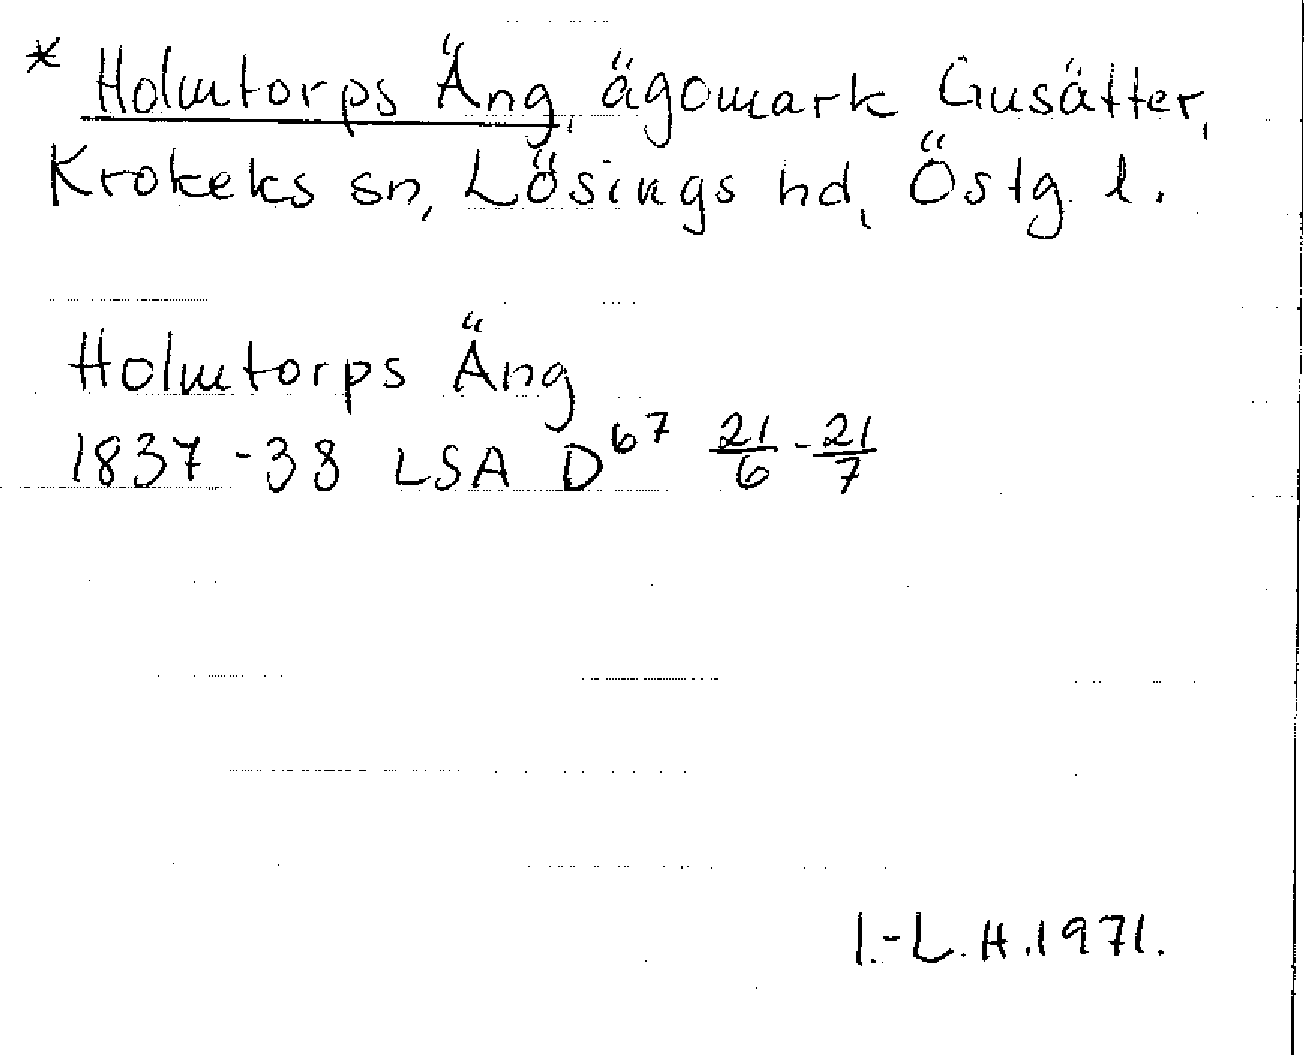 * Holmtorps Äng, ägomark Gusätter,
Krokeks sn, Lösings hd, Östg. l.
Holmtorps Äng
1837-38 LSA D⁶⁷ 21/6 - 21/7
I.-L.H.1971.